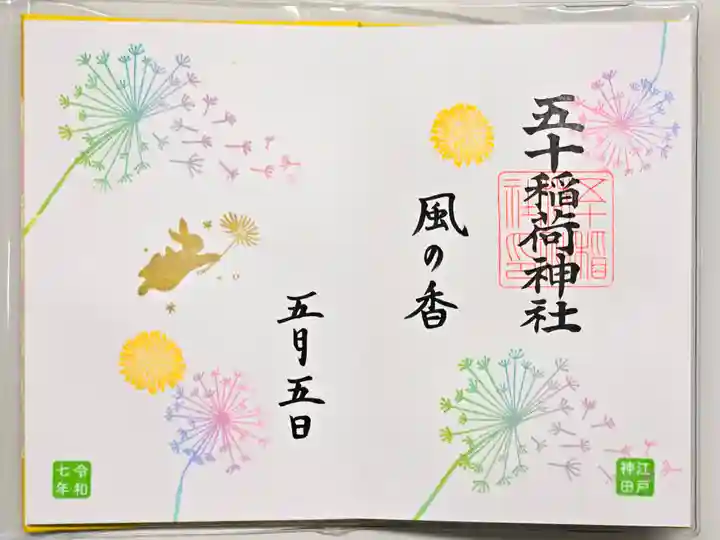 五十稲荷神社
風の香
五月五日
江戸
神田
令和
七年